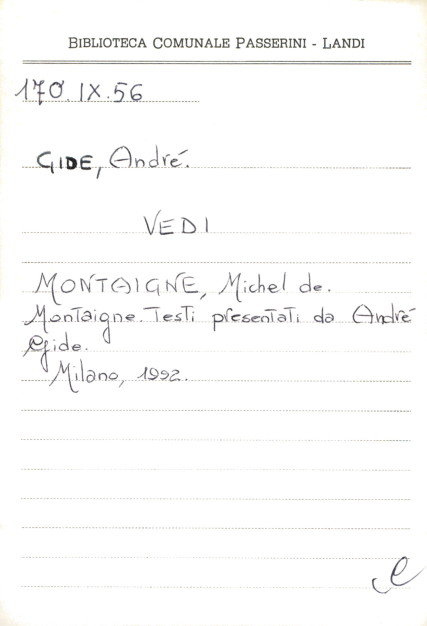 BIBLIOTECA COMUNALE PASSERINI - LANDI
170.IX.56
GIDE, André.
VEDI
MONTAIGNE, Michel de.
Montaigne. Testi presentati da André
Gide.
Milano, 1992.